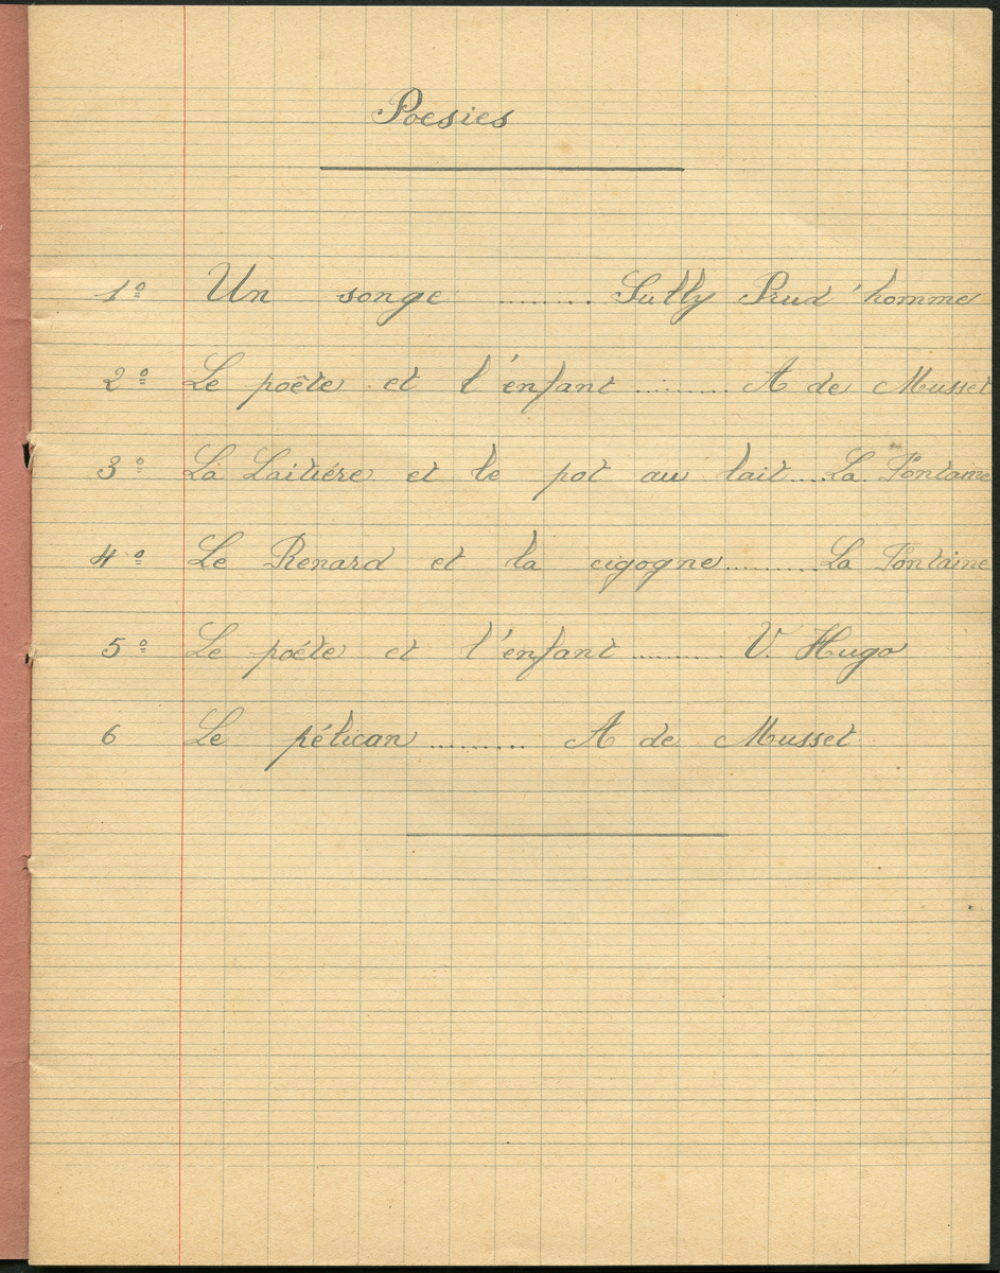 Poesies
1º Un songe ......... Sully Prud'homme
2º Le poête et l'enfant ......... A de Musset
3º La Laitiére et le pot au lait.... La Fontaine
4º Le Renard et la cigogne......... La Fontaine
5º Le poéte et l'enfant ......... V. Hugo
6 Le pélican ......... A de Musset